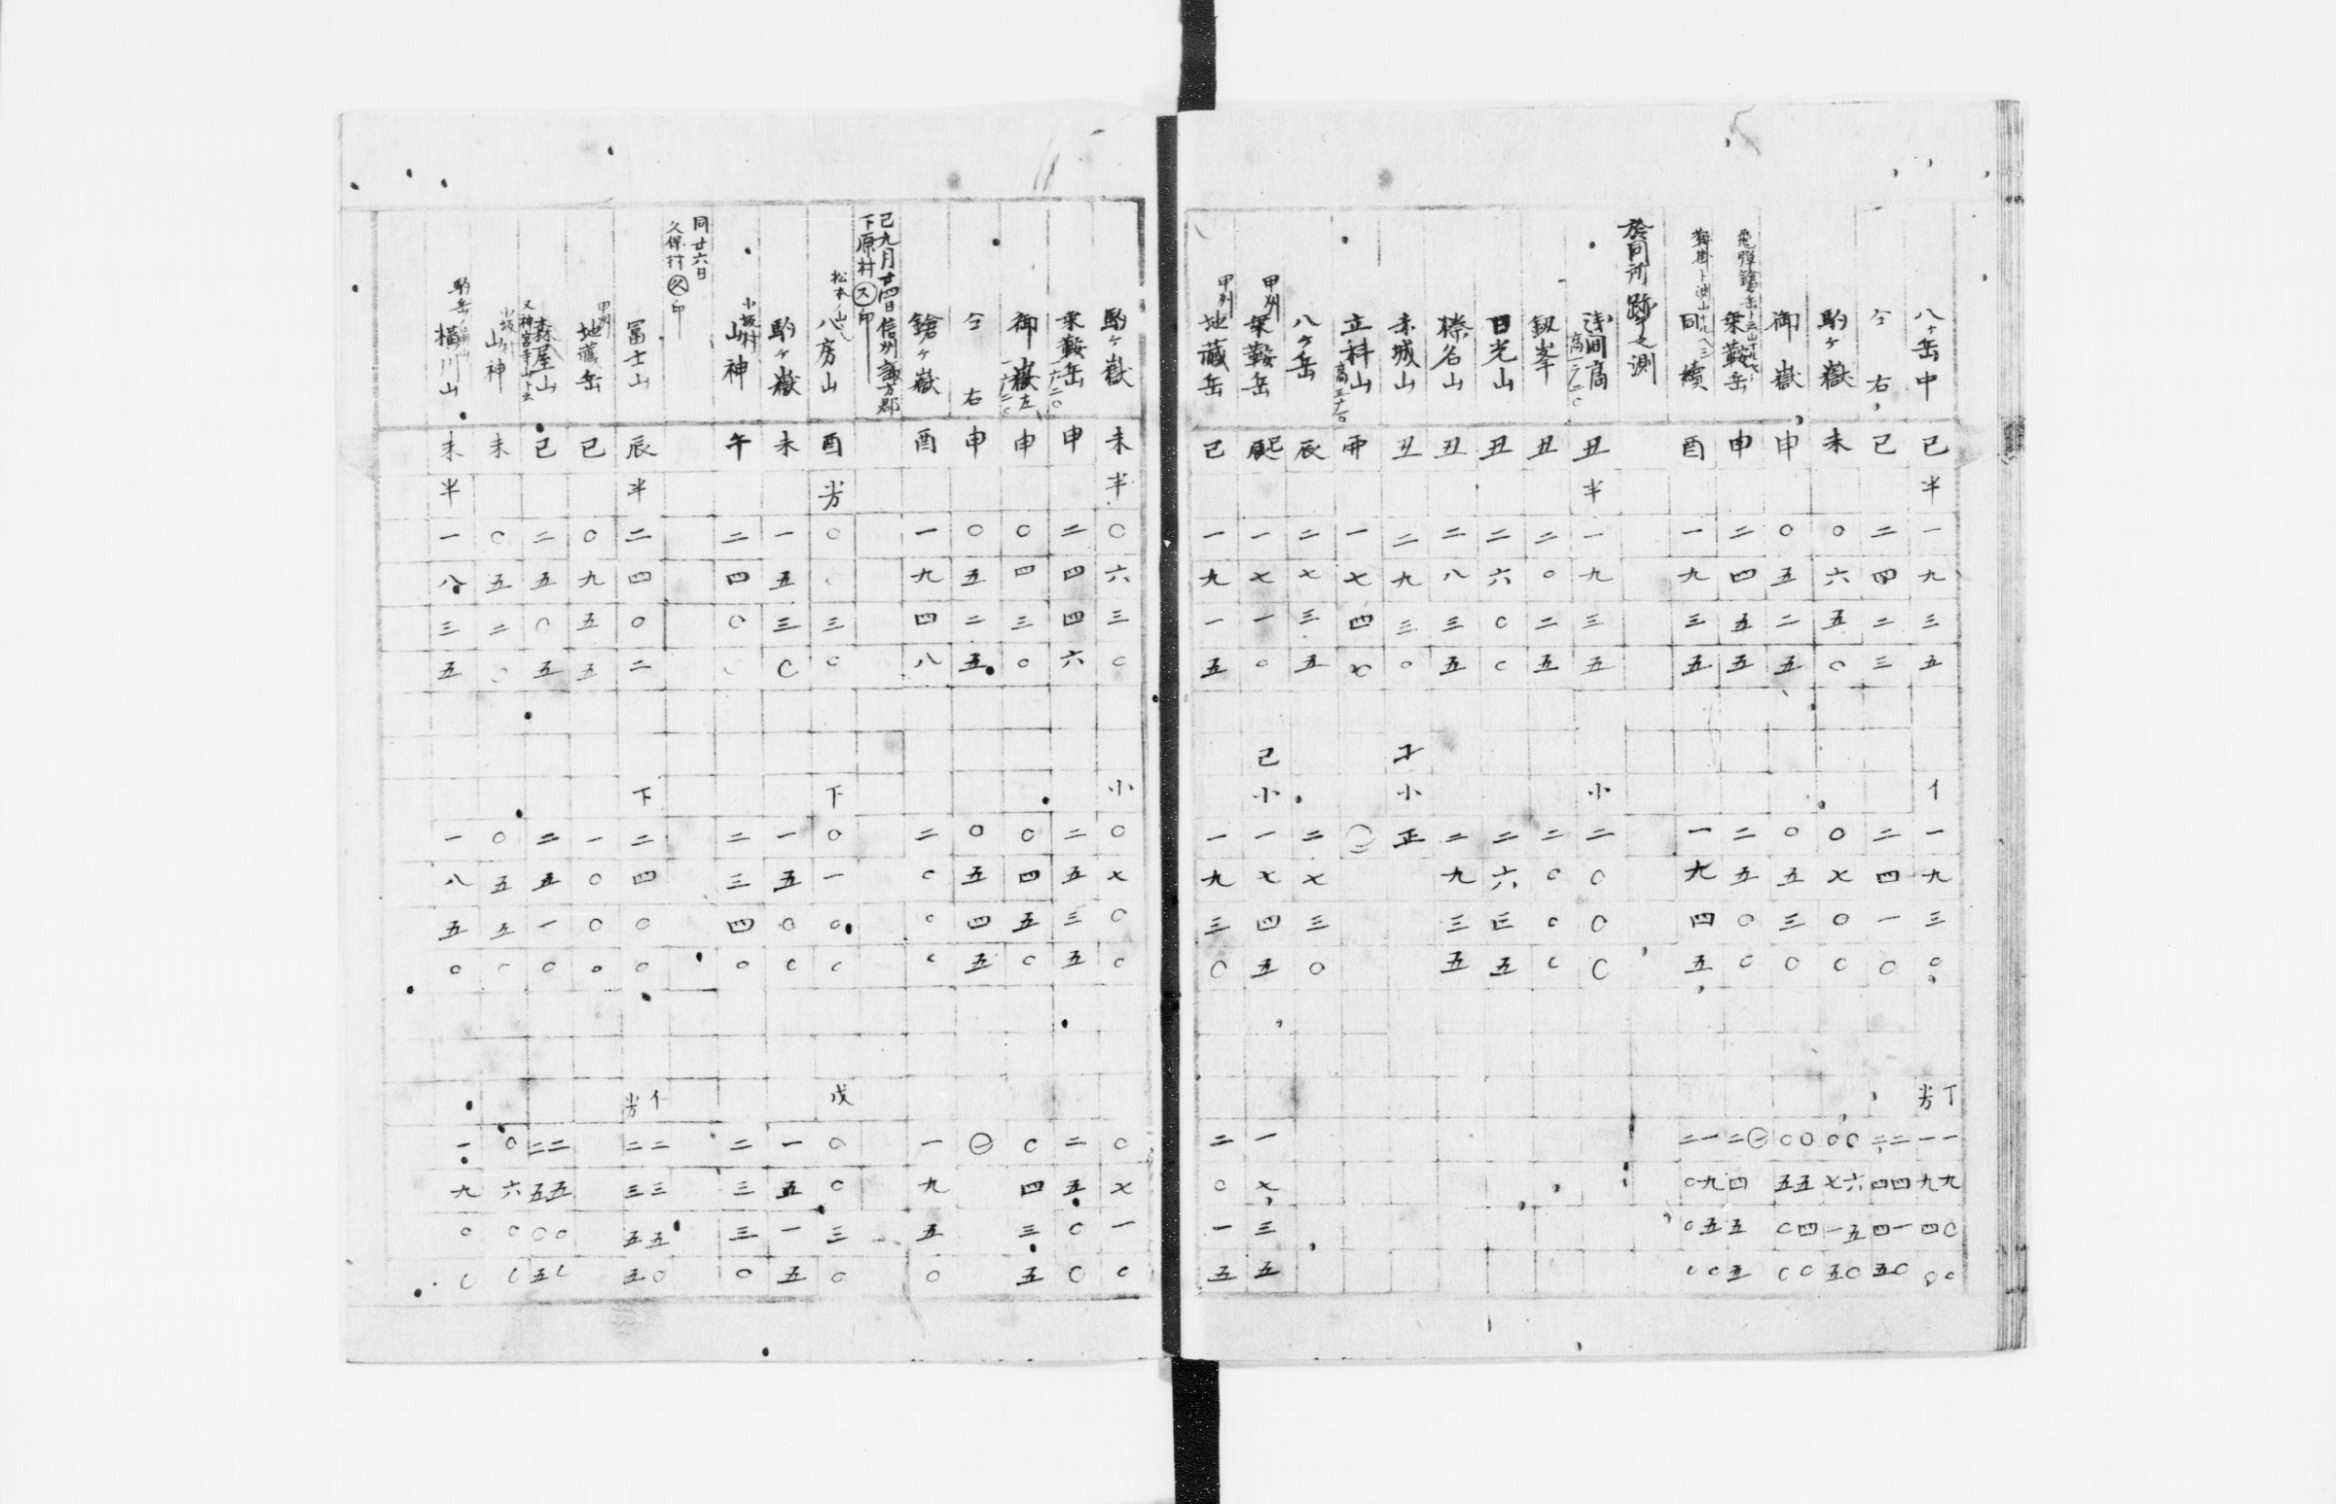 八ヶ岳中 巳 半 一九三五 イ 一九三〇 丁 一九〇〇 半方 一九四〇
仝右 巳 二四二三 二四一〇 二四一〇 二四四五
駒ヶ嶽 未 〇六五〇 〇七〇〇 〇六五〇 〇七一五
御嶽 申 〇五二五 〇五三〇 〇五四〇 〇五〇〇
乗鞍岳 申 二四五五 二五〇〇 二四五五
同續 酉 一九三五 一九四五 一九五〇 二〇〇〇
於同所 之測
浅間 高 丑 半 一九三五 小 二〇〇〇
釼峯 丑 二〇二五 二〇〇〇
日光山 丑 二六〇〇 二六三五
榛名山 丑 二八三五 二九三五
赤城山 丑 二九三〇 子 小 正
立科山 一七四七
八ヶ岳 辰 二七三五 二七三〇
甲州 乗鞍岳 一七一〇 巳 小 一七四五 一七三五
甲州 地蔵岳 巳 一九一五 一九三〇 二〇一五
駒ヶ嶽 未 半 〇六三〇 小 〇七〇〇 〇七一〇
乗鞍岳 申 二四四六 二五三五 二五〇〇
御嶽左 申 〇四三〇 〇四五〇 〇四三五
仝右 申 〇五二五 〇五四五
鎗ヶ嶽 酉 一九四八 二〇〇〇 一九五〇
巳九月廿四日信州諏方郡
下原村 印
松本ノ山 八房山 酉 半方 三〇 下 〇一〇〇 戌 〇〇三〇
駒ヶ嶽 未 一五三〇 一五〇〇 一五一五
小坂村 山神 午 二四〇 二三四〇 二三三〇
同廿六日
久保村 久 印
冨士山 辰 半 二四〇二 下 二四〇〇 イ 二三五〇 半方 二三五五
甲州 地蔵岳 巳 〇九五五 一〇〇〇
又神宮寺山ト云 森屋山 巳 二五〇五 二五一〇 二五〇〇 二五〇五
小坂 山神 未 〇五二〇 〇五五〇 〇六〇〇
駒岳ノ 横川山 未 半 一八三五 一八五〇 一九〇〇